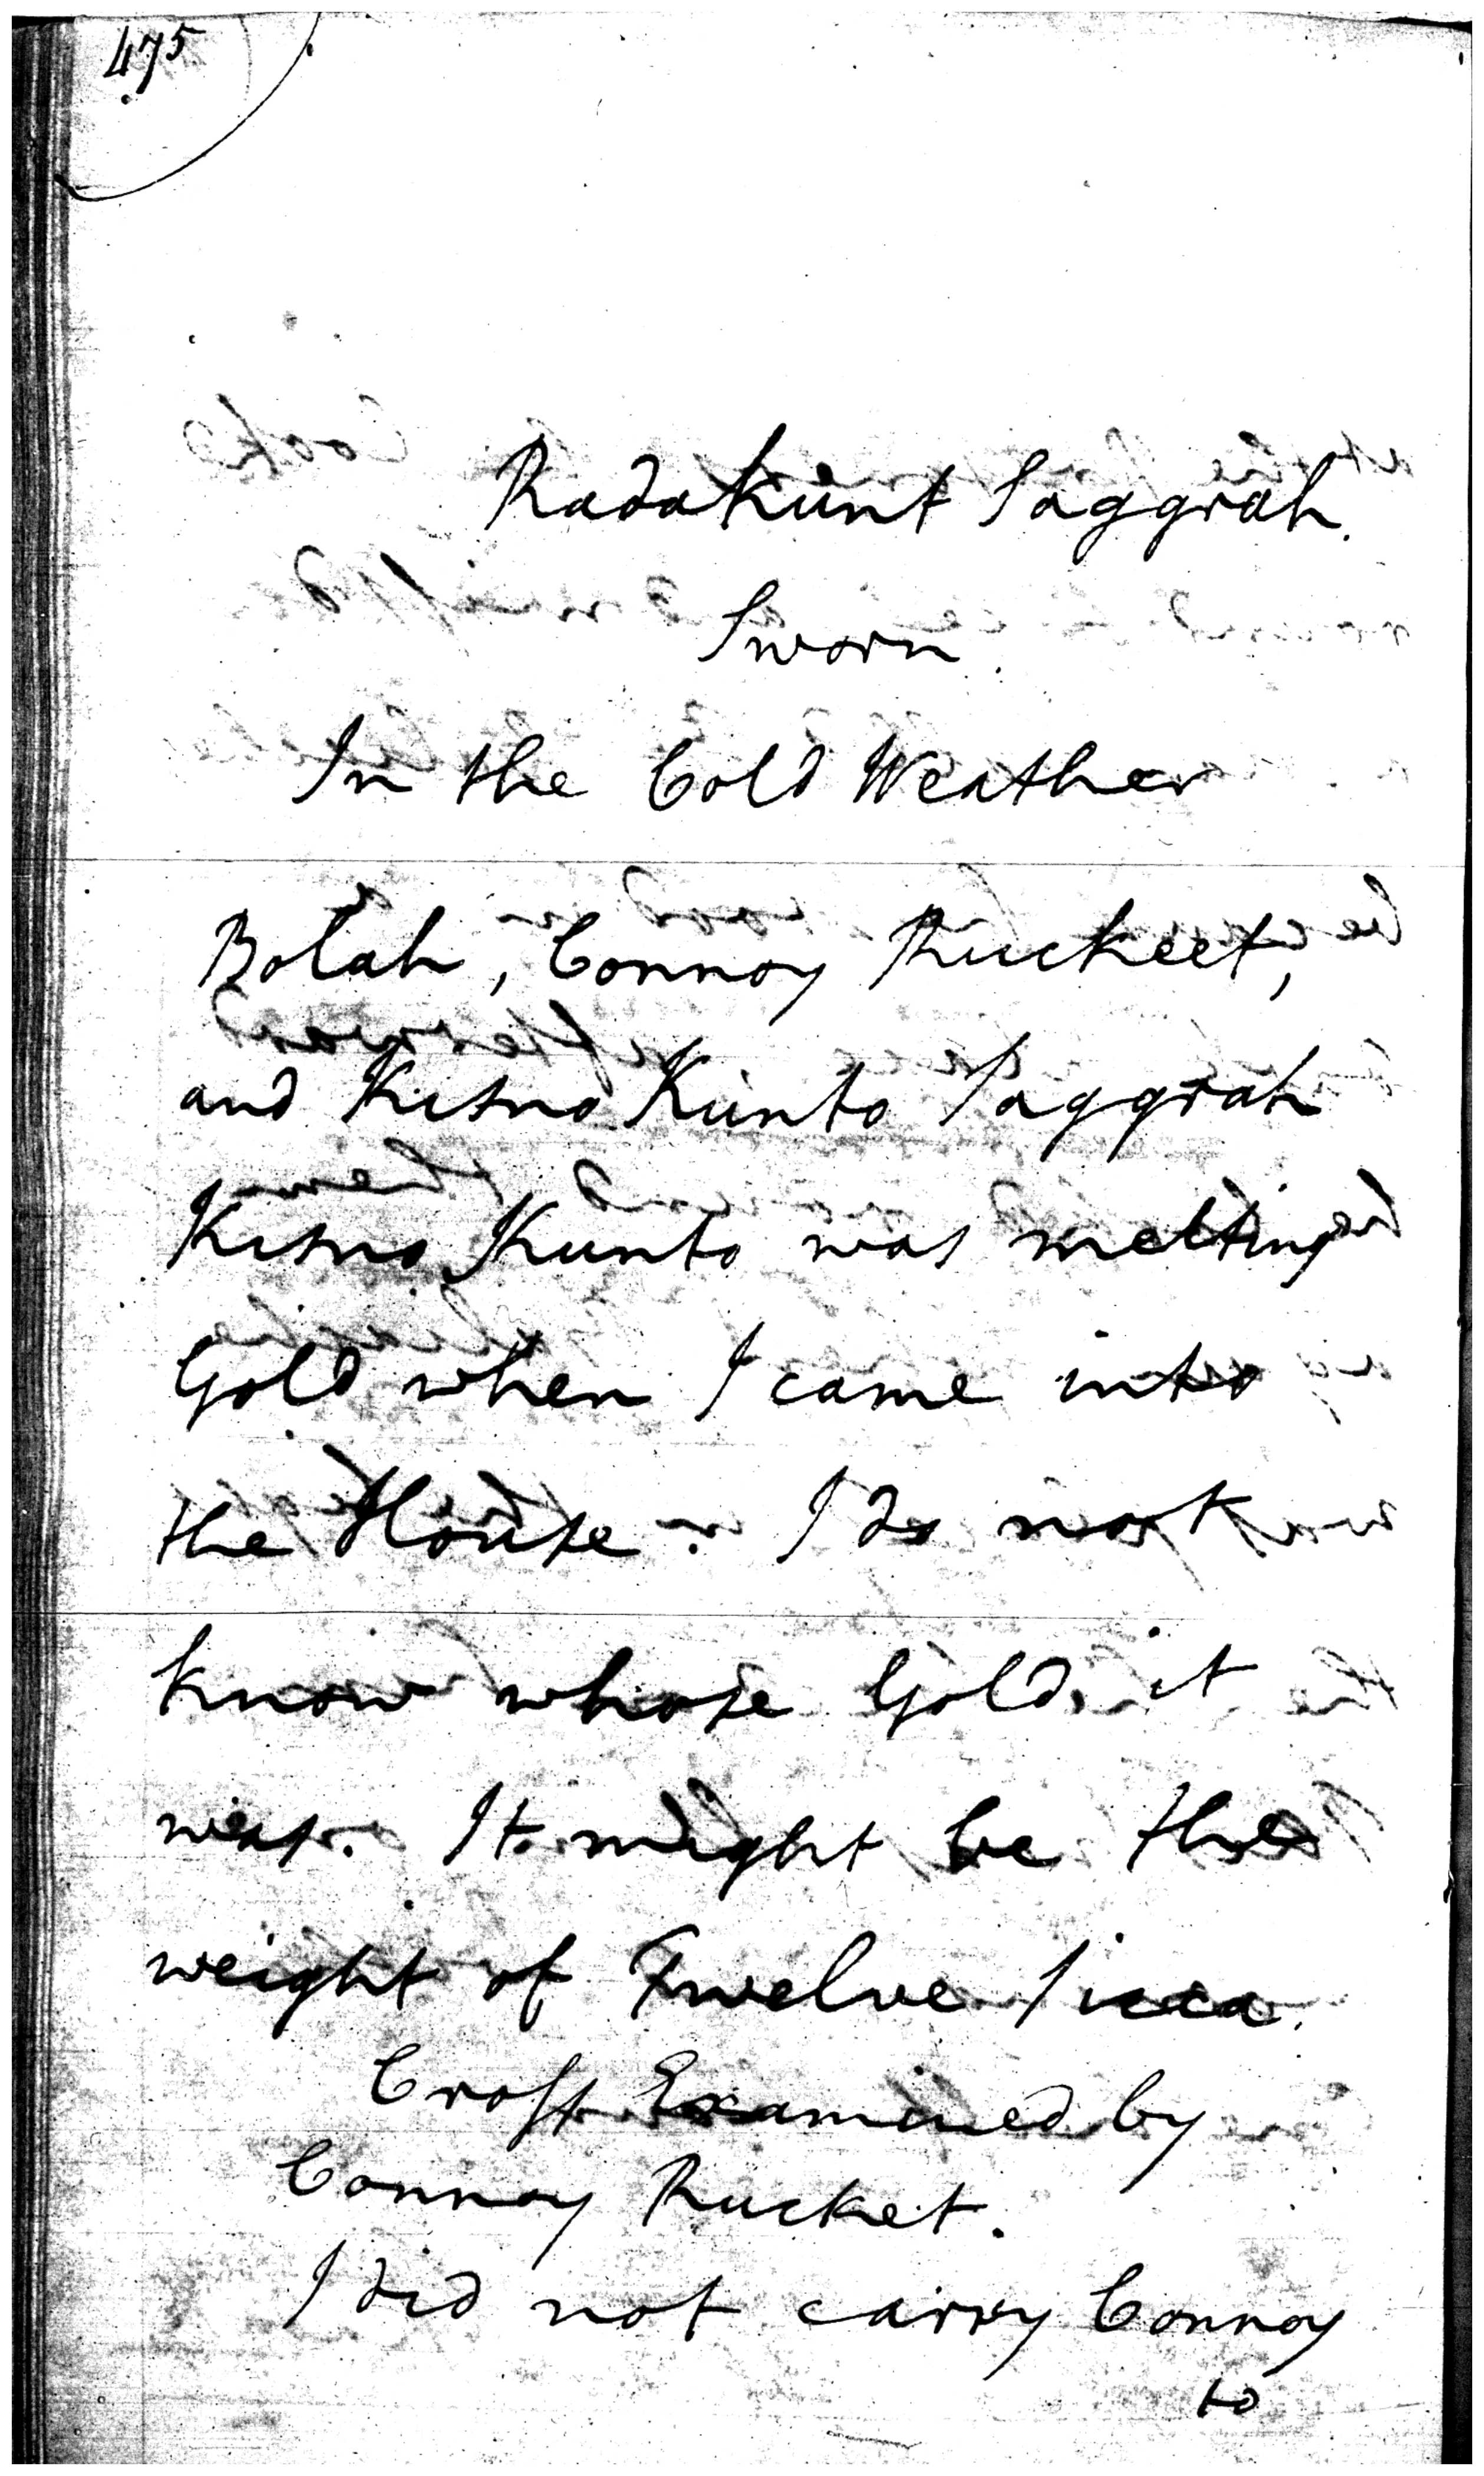 475
Radakunt Saggrah.
Sworn.
In the Cold Weather
Bolah, Connoy Ruckeet,
and Kisno Kunto Saggrah
Kisno Kunto was melting
Gold when I came into
the House. I do not
know whose Gold it
was. It might be the
weight of Twelve Sicca.
Cross Examined by
Connoy Rucket.
I did not carry Connoy
to